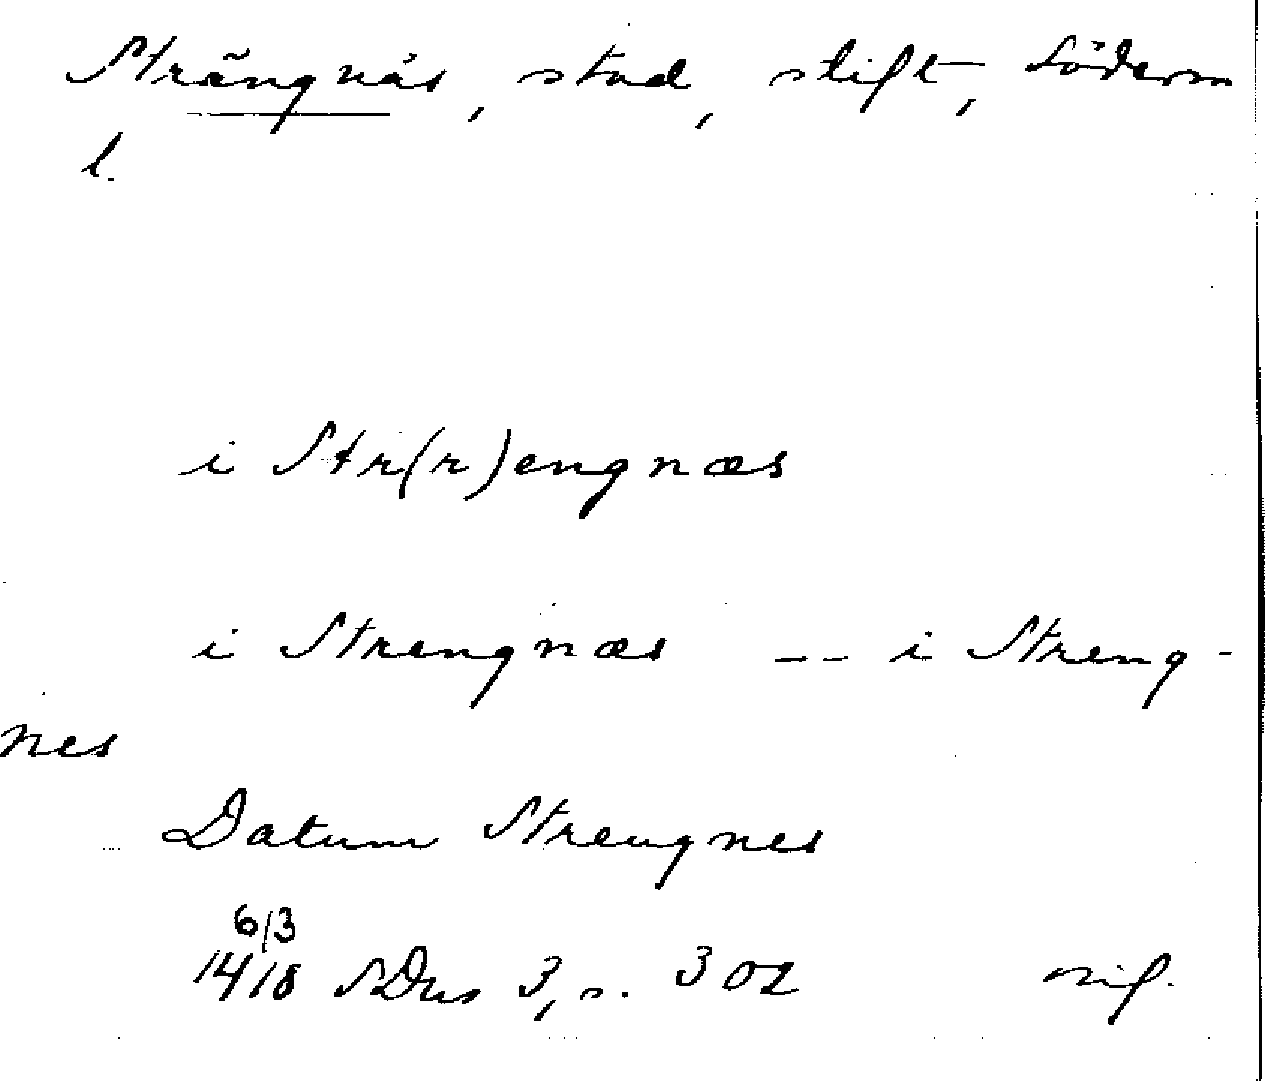 Strängnäs, stad, stift, Söderm
l.
i Str(r)engnæs
i Strengnæs -- i Streng-
nes
Datum Strengnes
6/3
1418 SDns 3, s. 302 nif.